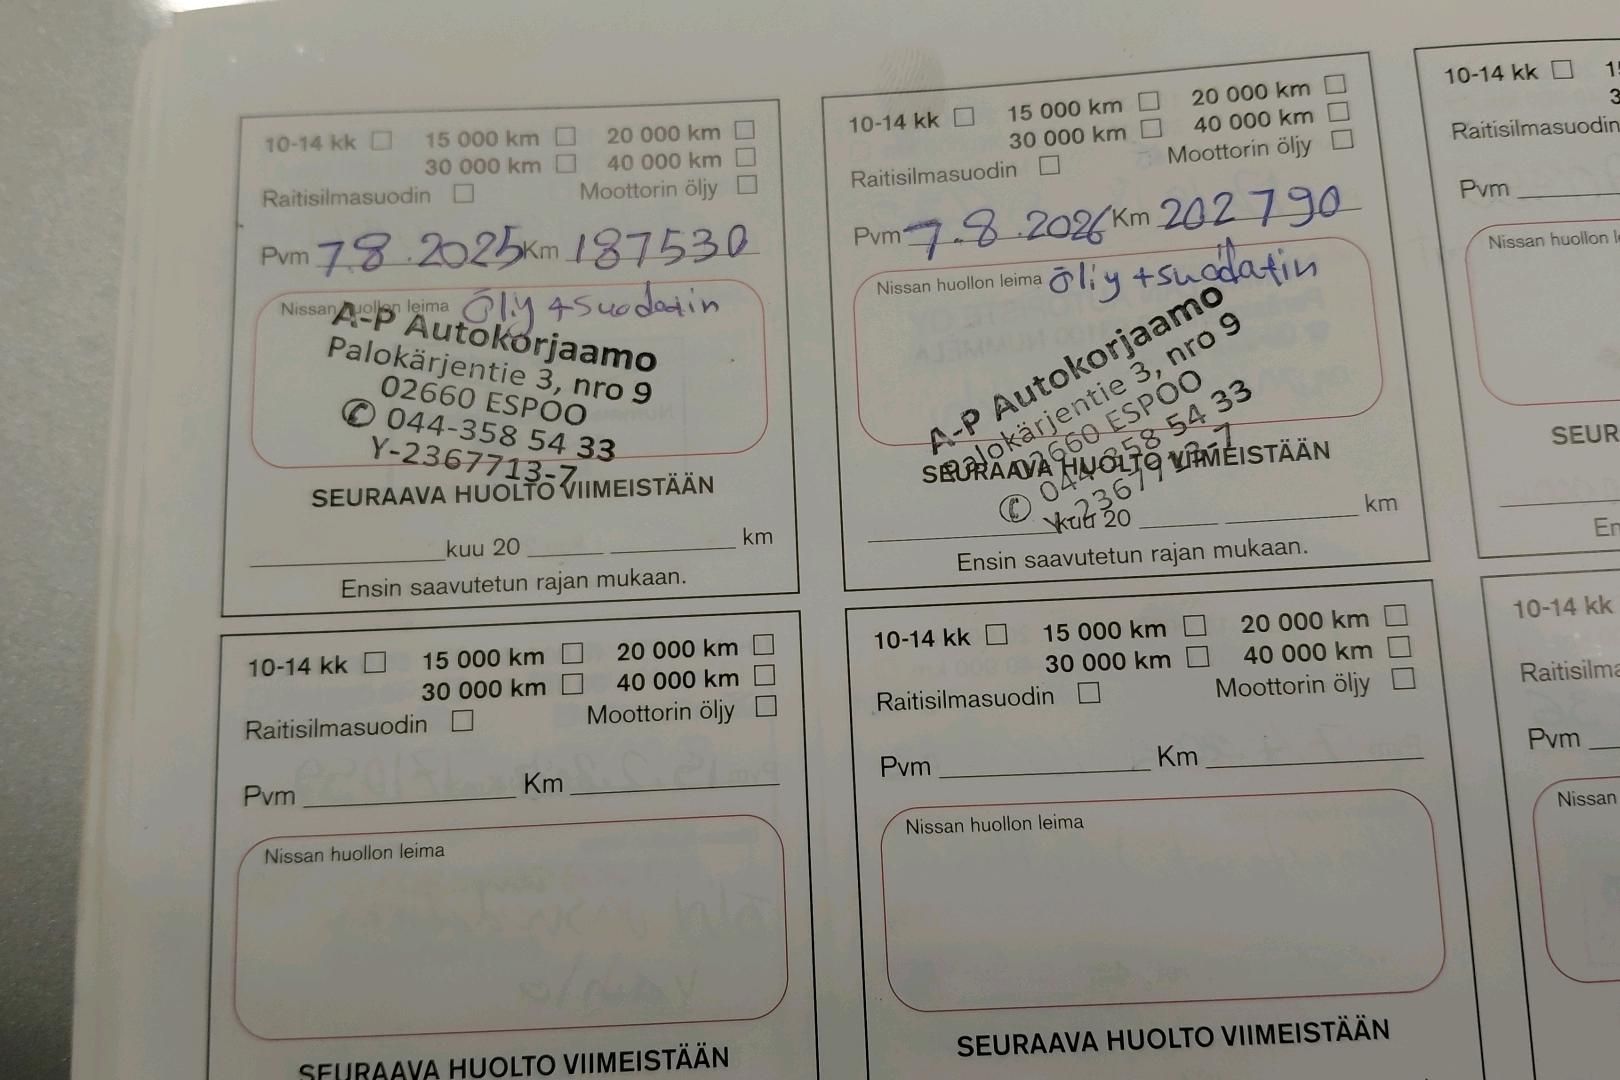 10-14 kk 15 000 km 20 000 km
30 000 km 40 000 km
Raitisilmasuodin Moottorin öljy
Pvm 7.8.2025 Km 187530
Nissan huollon leima Öljy + suodatin
A-P Autokorjaamo
Palokärjentie 3, nro 9
02660 ESPOO
✆ 044-358 54 33
Y-2367713-7
SEURAAVA HUOLTO VIIMEISTÄÄN
kuu 20 km
Ensin saavutetun rajan mukaan.
10-14 kk 15 000 km 20 000 km
30 000 km 40 000 km
Raitisilmasuodin Moottorin öljy
Pvm 7.8.2026 Km 202790
Nissan huollon leima Öljy + suodatin
A-P Autokorjaamo
Palokärjentie 3, nro 9
02660 ESPOO
✆ 044-358 54 33
Y-2367713-7
SEURAAVA HUOLTO VIIMEISTÄÄN
kuu 20 km
Ensin saavutetun rajan mukaan.
10-14 kk
Raitisilmasuodin
Pvm
Nissan huollon
SEUR
En
10-14 kk 15 000 km 20 000 km
30 000 km 40 000 km
Raitisilmasuodin Moottorin öljy
Pvm Km
Nissan huollon leima
SEURAAVA HUOLTO VIIMEISTÄÄN
10-14 kk 15 000 km 20 000 km
30 000 km 40 000 km
Raitisilmasuodin Moottorin öljy
Pvm Km
Nissan huollon leima
SEURAAVA HUOLTO VIIMEISTÄÄN
10-14 kk
Raitisilma
Pvm
Nissan